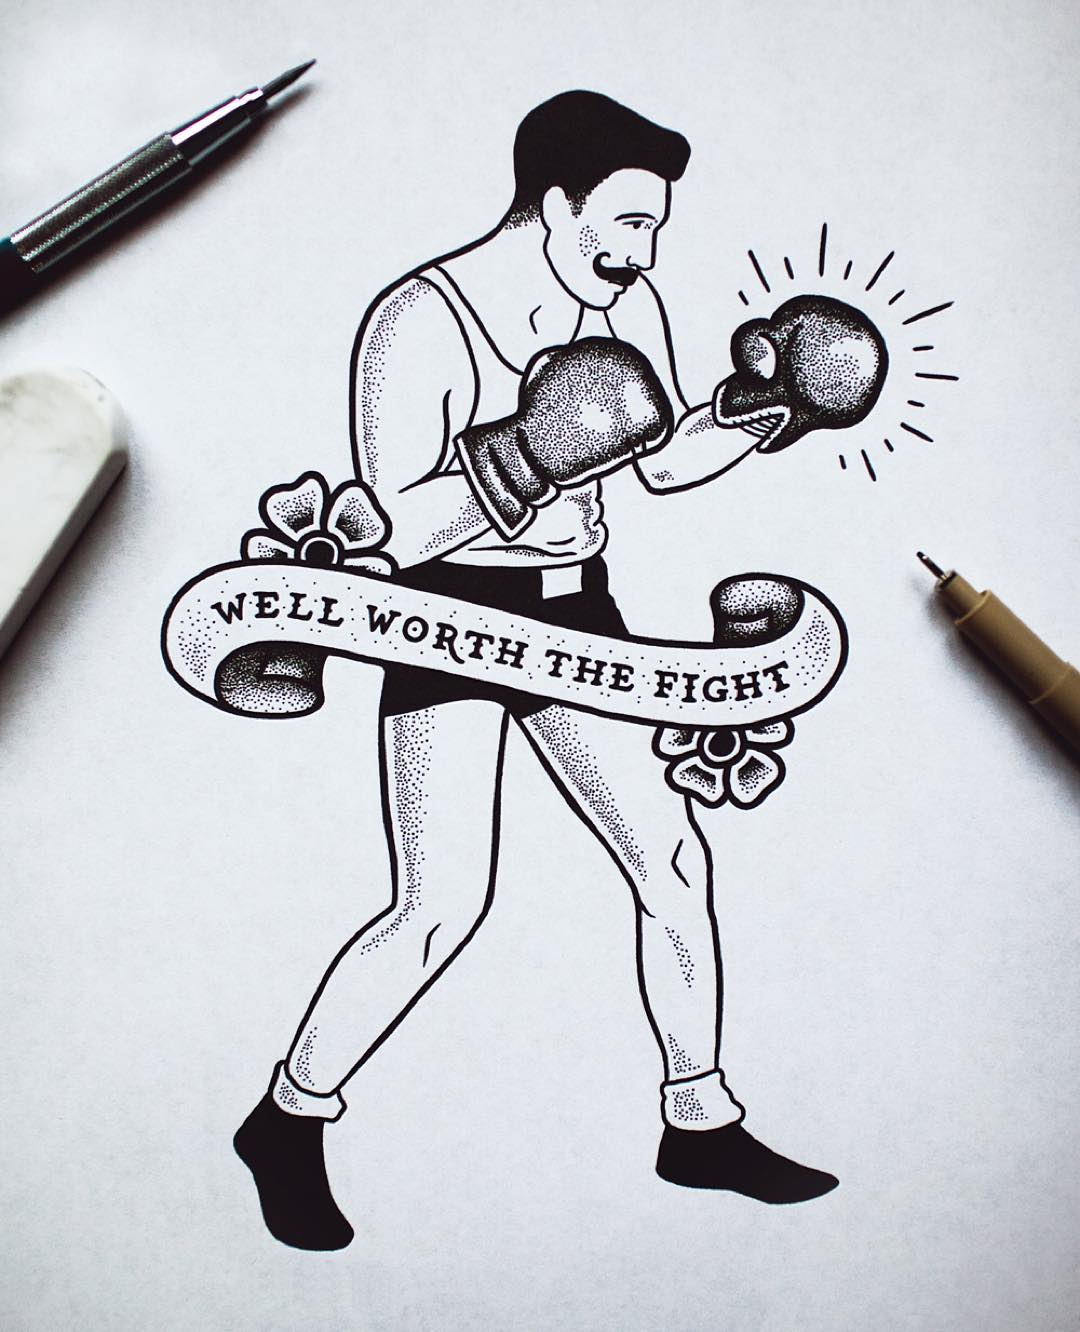 WELL WORTH THE FIGHT